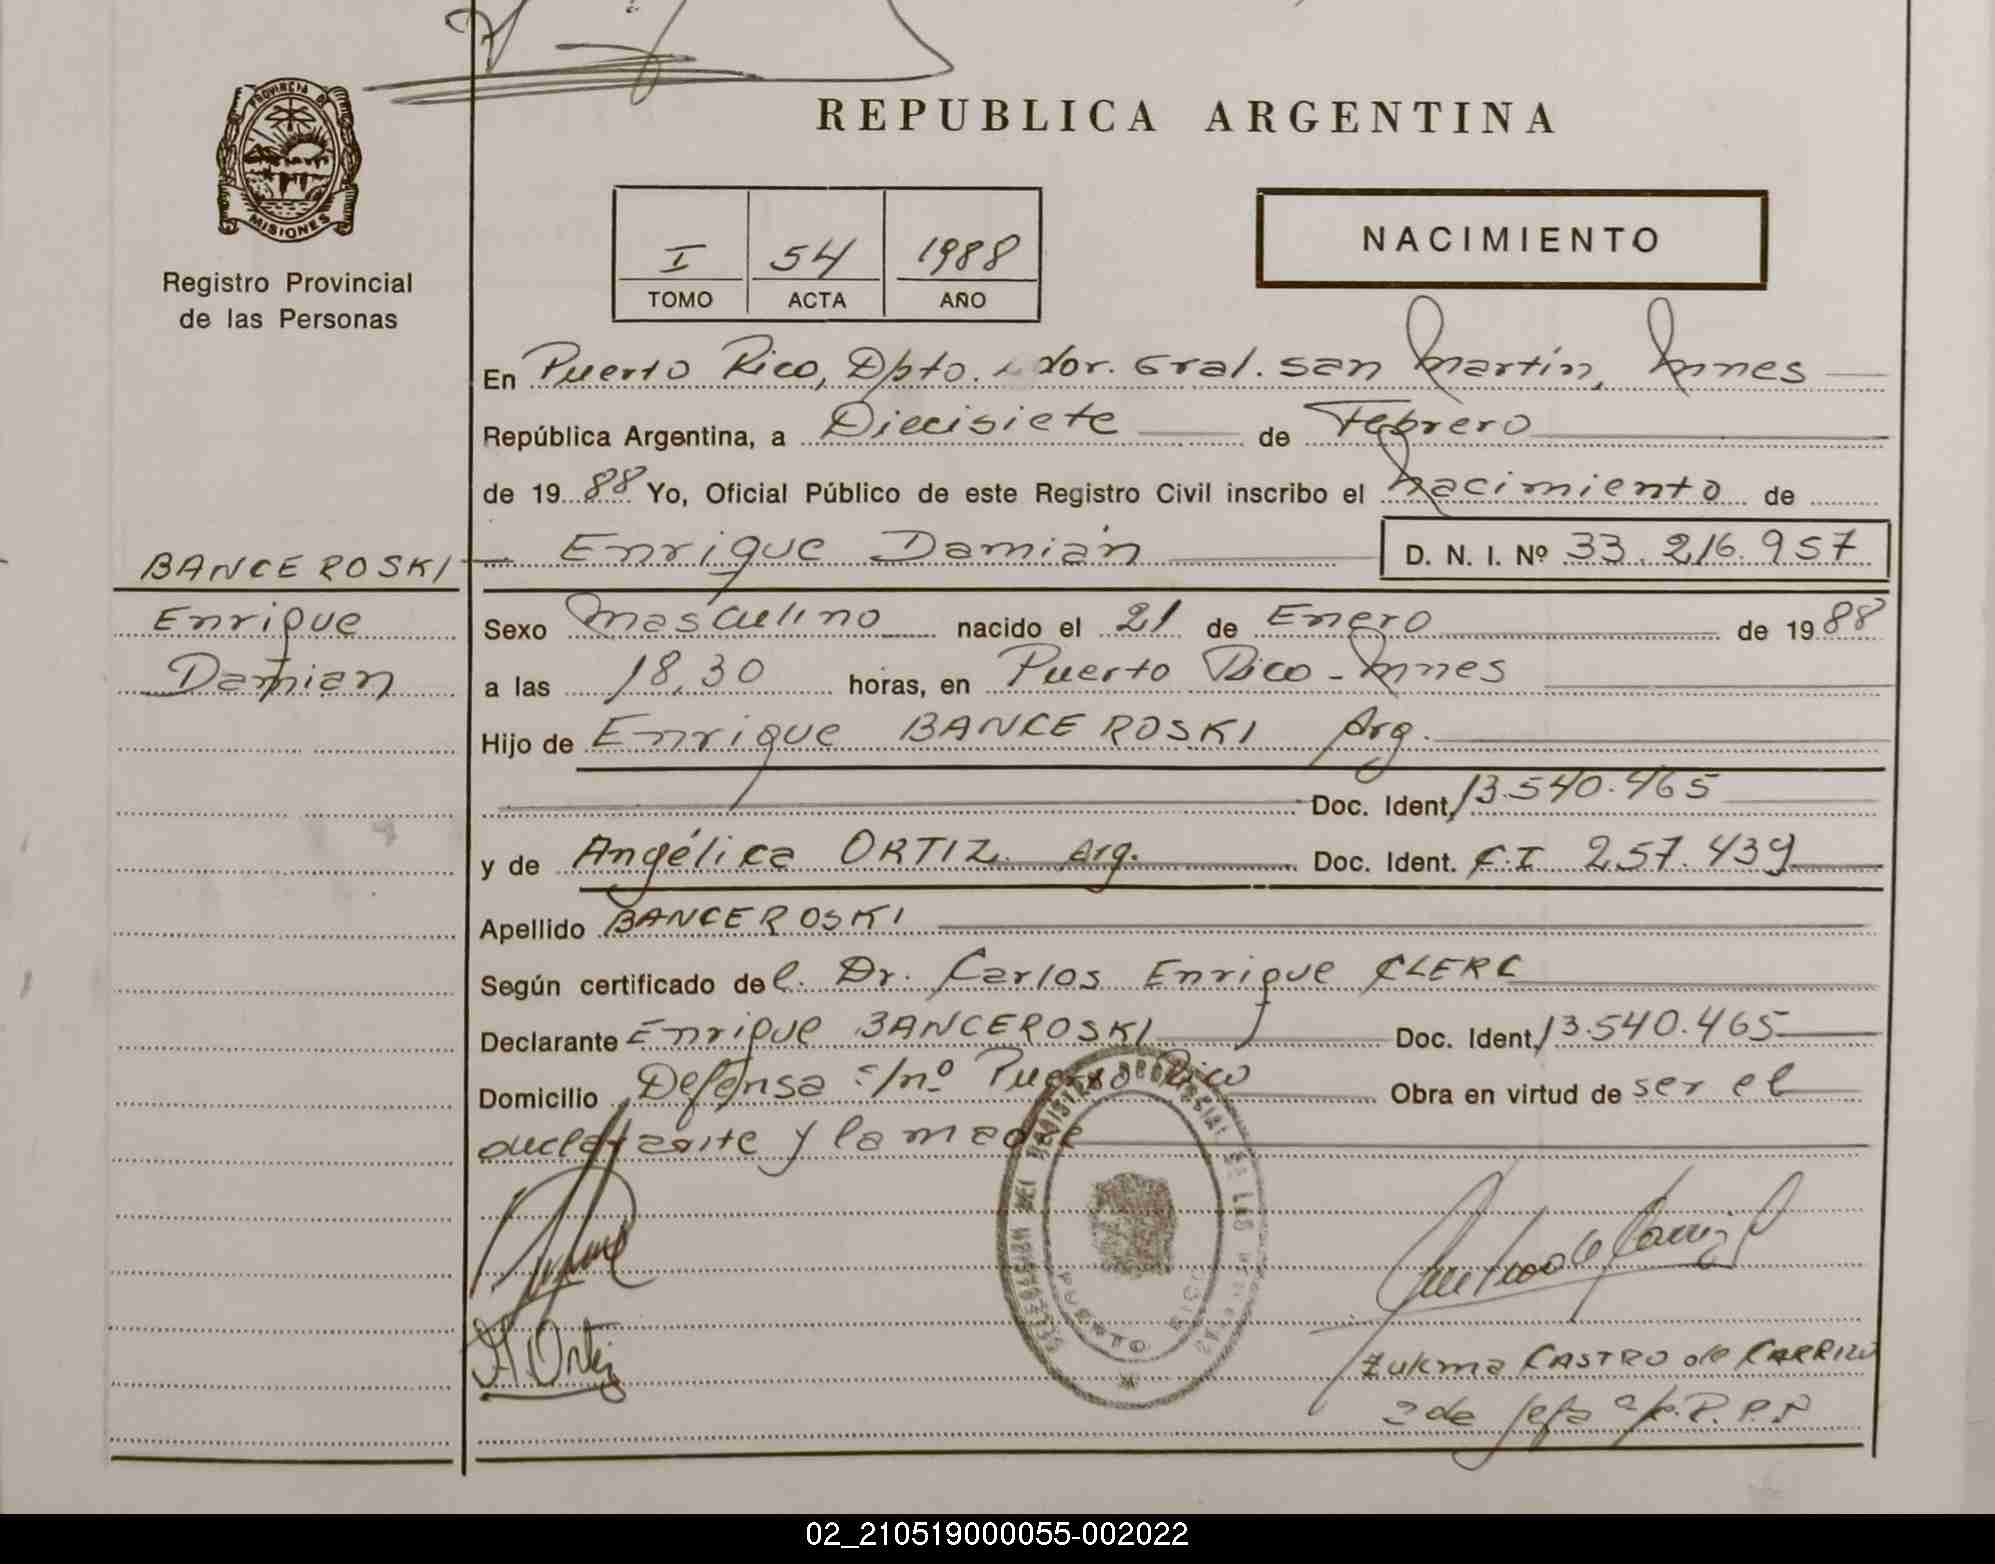 REPUBLICA ARGENTINA
PROVINCIA DE
MISIONES
Registro Provincial
de las Personas
I 54 1988
TOMO ACTA AÑO
NACIMIENTO
En Puerto Rico, Dpto. Ldor. Gral. San Martín, Mnes
República Argentina, a Diecisiete de Febrero
de 1988 Yo, Oficial Público de este Registro Civil inscribo el nacimiento de
BANCEROSKI Enrique Damián D. N. I. Nº 33.216.957
Enrique
Damian
Sexo Masculino nacido el 21 de Enero de 1988
a las 18,30 horas, en Puerto Rico - Mnes
Hijo de Enrique BANCEROSKI Arg.
Doc. Ident. 13.540.465
y de Angélica ORTIZ Arg. Doc. Ident. C.I 257.439
Apellido BANCEROSKI
Según certificado del Dr. Carlos Enrique CLERC
Declarante Enrique BANCEROSKI Doc. Ident. 13.540.465
Domicilio Defensa s/nº Puerto Rico Obra en virtud de ser el
declarante y la madre
REGISTRO PROVINCIAL DE LAS
PUERTO RICO
A. Ortiz
Zukma CASTRO de CARRIZO
2da Jefa
02_210519000055-002022